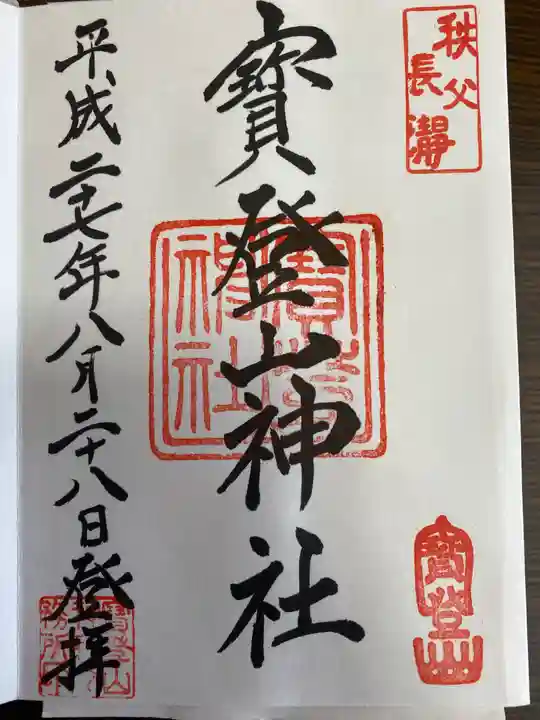 秩父
長瀞
寳登山神社
寳登山神社
寳登山
平成二十七年八月二十八日登拝